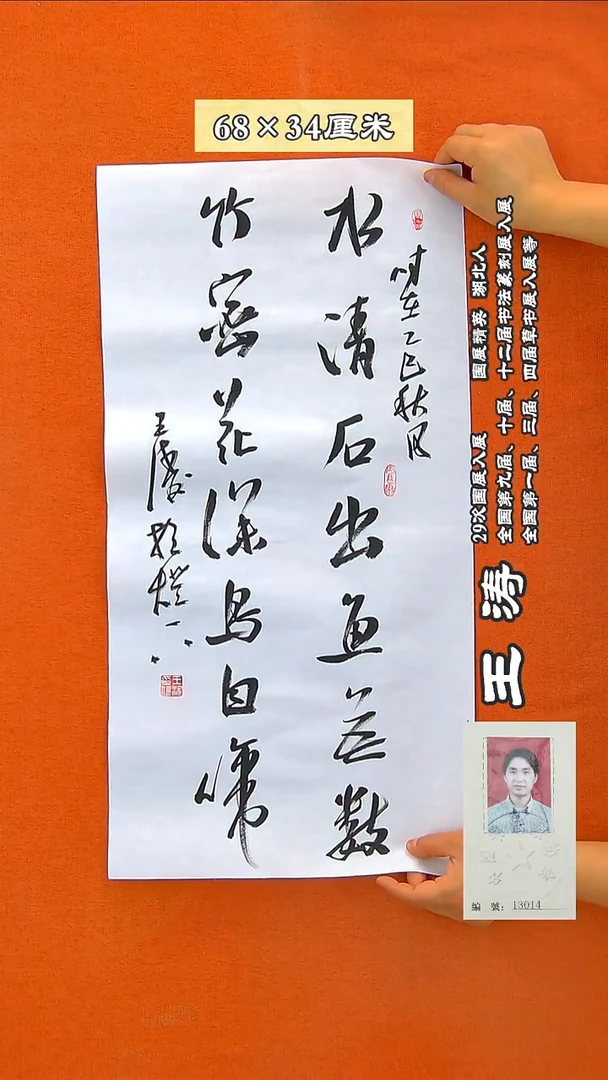 68×34厘米
时在乙巳秋月
水清石出鱼无数
竹密花深鸟自啼
王涛
29次国展入展 国展精英 湖北人
全国第九届、十届、十二届书法篆刻展入展
全国第一届、三届、四届草书展入展等
王涛
编號：13014